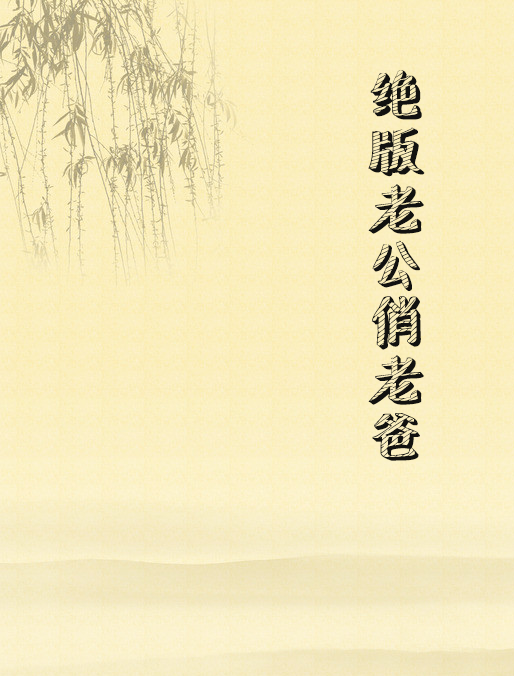 绝版老公俏老爸